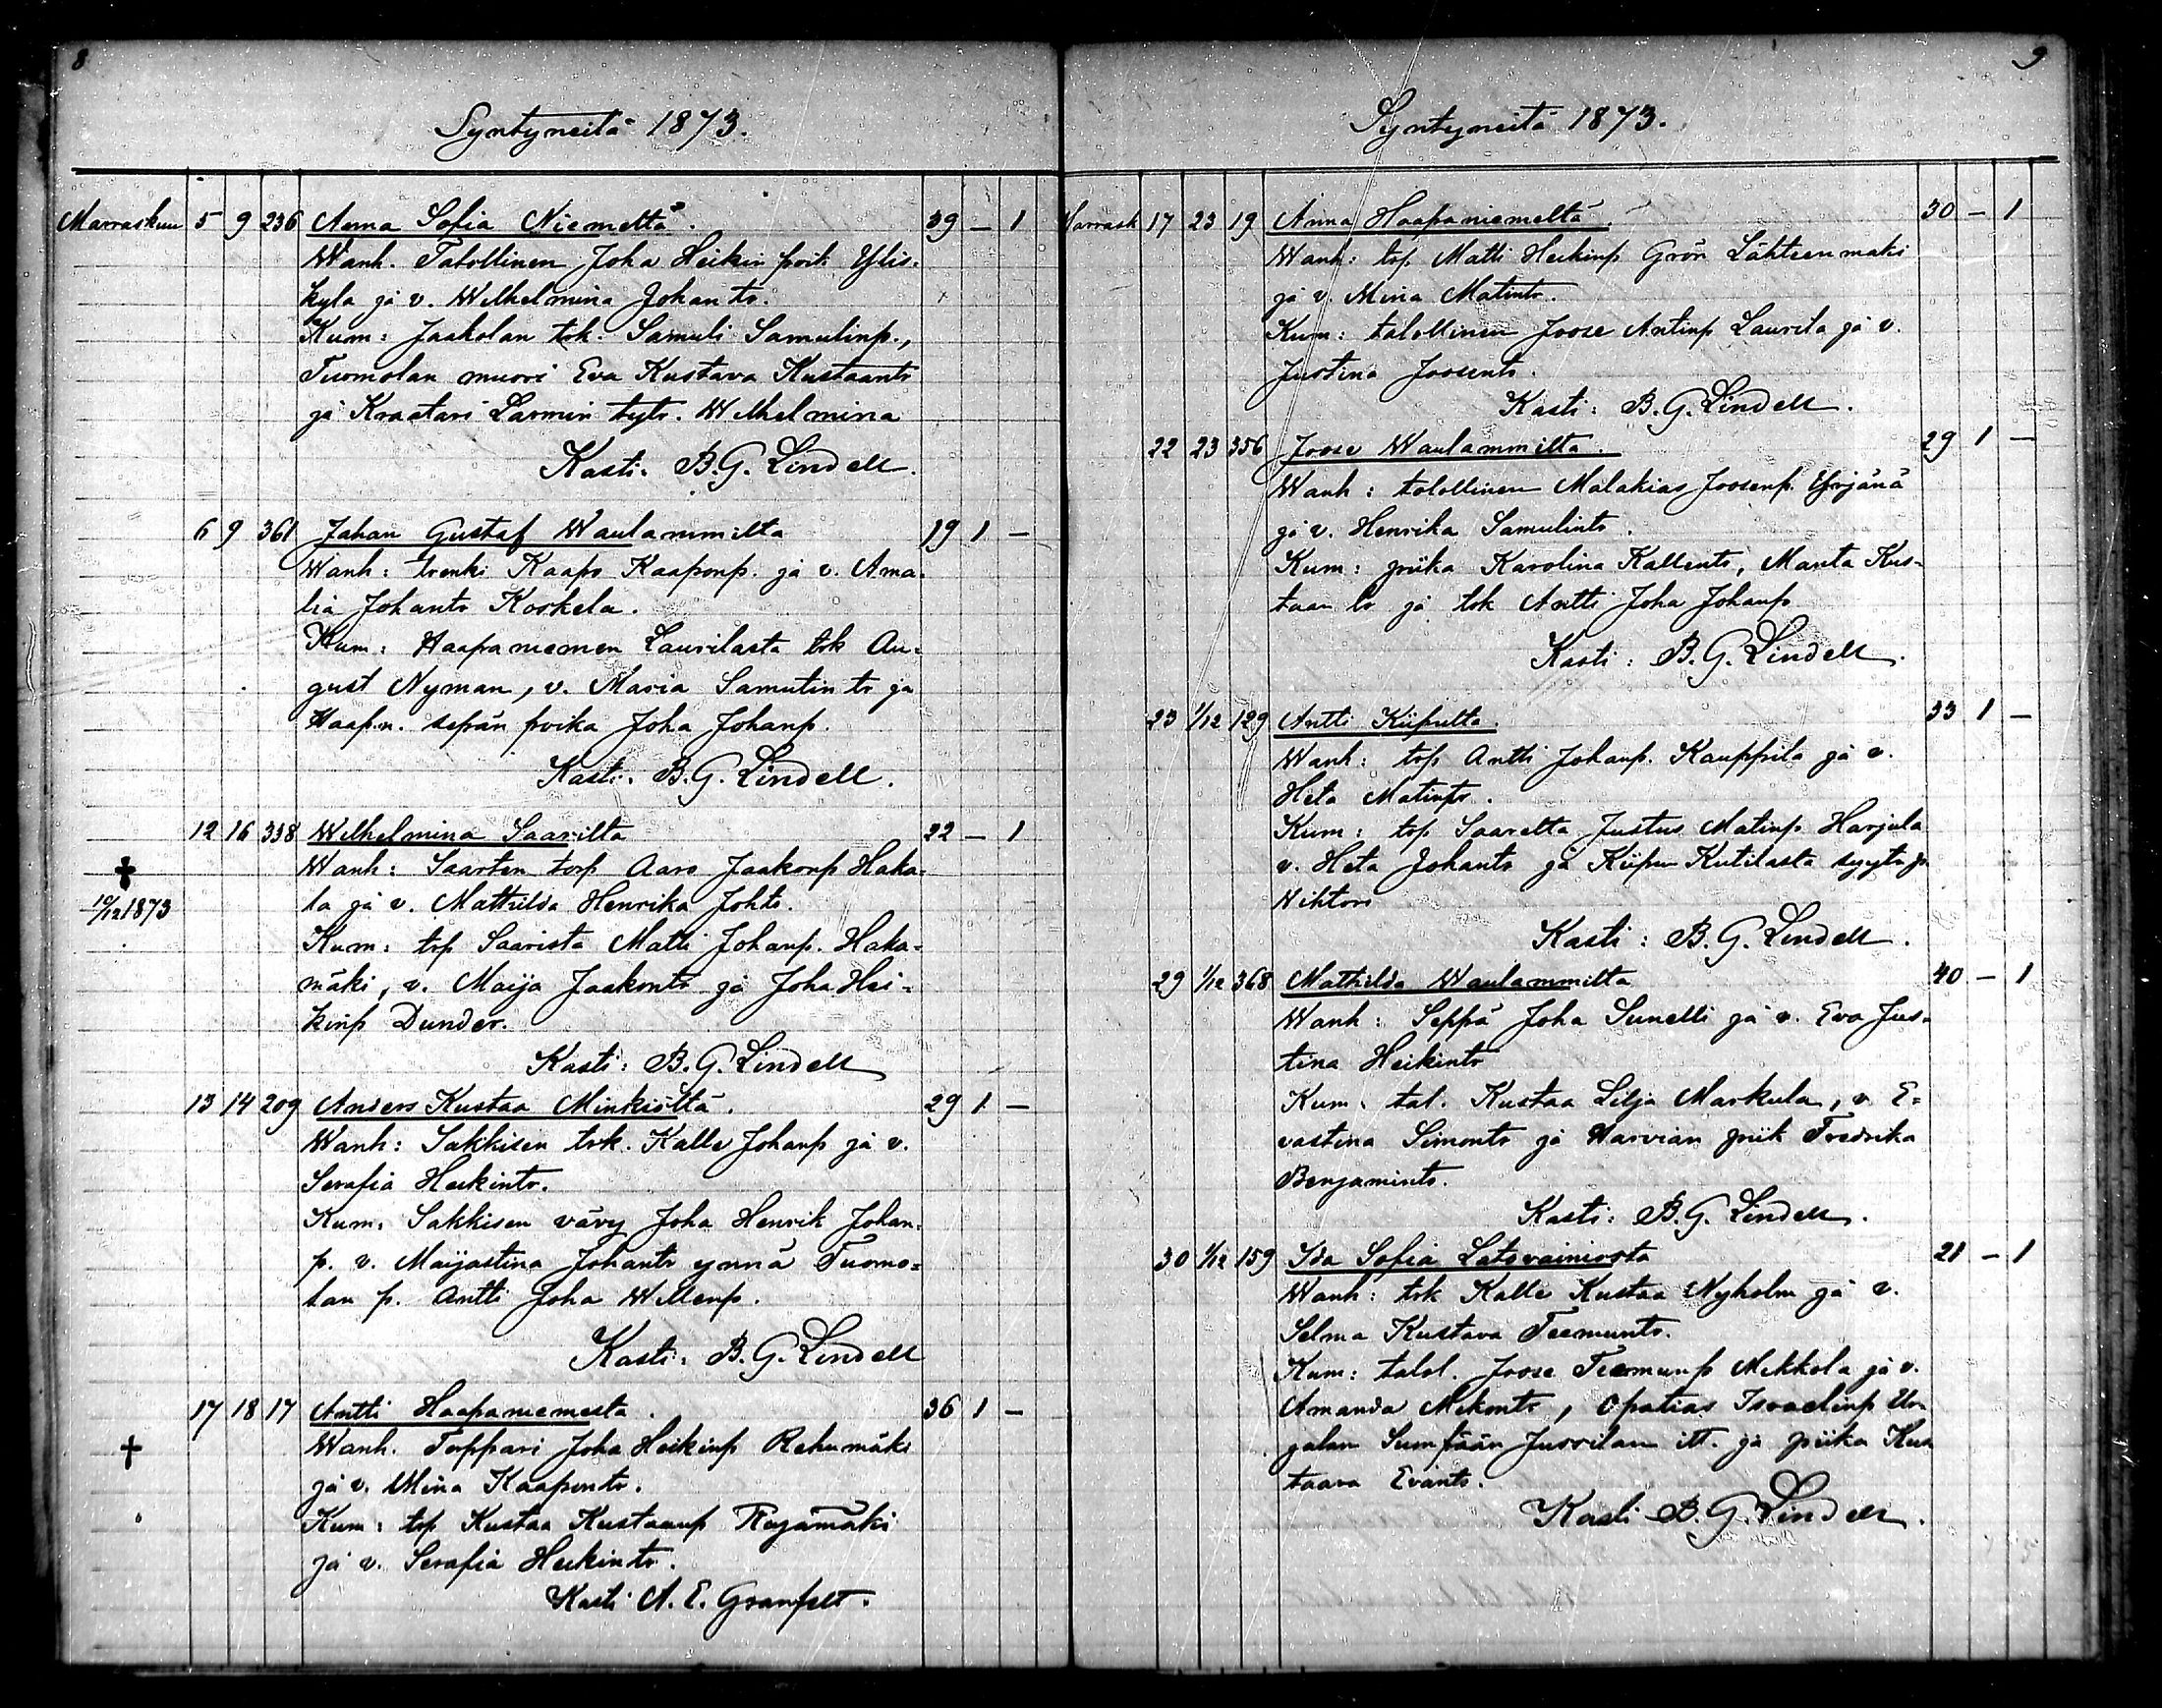 8
Syntyneitä 1873.
Marraskuu 5 9 236 Anna Sofia Niemeltä. 39 – 1
Wanh. Talollinen Joha Heikin poik Ylis-
kyla ja v. Wilhelmina Johantr.
Kum: Jaakolan trk. Samuli Samulinp.,
Tuomolan muori Eva Kustava Kustaantr
ja Kraatari Larmin tytr. Wilhelmina
Kasti: B.G. Lindell.
6 9 361 Johan Gustaf Waulammilta 19 1 –
Wanh: trenki Kaapo Kaaponp. ja v. Ama-
lia Johantr Koskela.
Kum: Haapaniemen Laurilasta trk Au-
gust Nyman, v. Maria Samulintr ja
Haap.n. sepän poika Joha Johanp.
Kasti: B.G. Lindell.
12 16 338 Wilhelmina Saarilta 22 – 1
Wanh: Saarten torp Aaro Jaakonp Haka-
la ja v. Mathilda Henrika Johtr.
10/12 1873
Kum: trp Saarista Matti Johanp. Haka-
mäki, v. Maija Jaakontr ja Joha Hei-
kinp Dunder.
Kasti: B.G. Lindell
13 14 209 Anders Kustaa Minkiöltä. 29 1 –
Wanh: Sakkisen trk. Kalle Johanp ja v.
Serafia Heikintr.
Kum: Sakkisen vävy Joha Henrik Johan-
p. v. Maijastina Johantr ynnä Tuomo-
lan p. Antti Joha Willenp.
Kasti: B.G. Lindell
17 18 17 Antti Haapaniemesta. 36 1 –
Wanh. Torppari Joha Heikinp Rehumäki
ja v. Miina Kaapontr.
Kum: trp Kustaa Kustaanp Rajamäki
ja v. Serafia Heikintr.
Kasti A. E. Granfelt.
9
Syntyneitä 1873.
Marrask 17 23 19 Anna Haapaniemeltä. 30 – 1
Wanh: trp Matti Heikinp Grön Lähteenmäki
ja v. Miina Matintr.
Kum: talollinen Joose Antinp Laurila ja v.
Justina Joosentr.
Kasti: B.G. Lindell.
22 23 356 Joose Waulammilta. 29 1 –
Wanh: talollinen Malakias Joosenp. Yrjänä
ja v. Henrika Samulintr.
Kum: piika Karolina Kallentr, Manta Kus-
taan tr ja trk Antti Joha Johanp
Kasti: B.G. Lindell.
23 1/12 129 Antti Kiipulta. 33 1 –
Wanh: trp Antti Johanp. Kauppila ja v.
Heta Matintr.
Kum: trp Saarelta Justus Matinp Harjula
v. Heta Johantr ja Kiipu Kutilasta
Wihtori
Kasti: B.G. Lindell.
29 1/12 368 Mathilda Waulammilta 40 – 1
Wanh: Seppä Joha Sunelli ja v. Eva Jus-
tina Heikintr
Kum: tal. Kustaa Lilja Markula, v. E-
vastina Simontr ja Harvian piik Fredrika
Benjamintr.
Kasti: B.G. Lindell.
30 1/12 159 Ida Sofia Latovainiosta 21 – 1
Wanh: trk Kalle Kustaa Nyholm ja v.
Selma Kustava Teemuntr.
Kum: talol. Joose Teemunp Mikkola ja v.
Amanda Mikontr, Opatias Israelinp Uu-
galan Jussilan itt. ja piika Kus
taava Evantr.
Kasti B.G. Lindell.